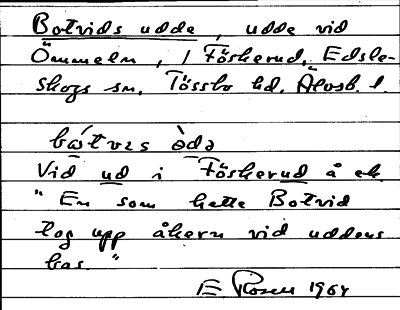 Botvids udde, udde vid
Ömmeln, i Föskerud, Edsle-
skogs sn. Tössbo hd. Älvsb. l.
båtves òdə
Vid ud i Föskerud å ek.
"En som hette Botvid
tog upp åkern vid uddens
bas."
E. Rosen 1964